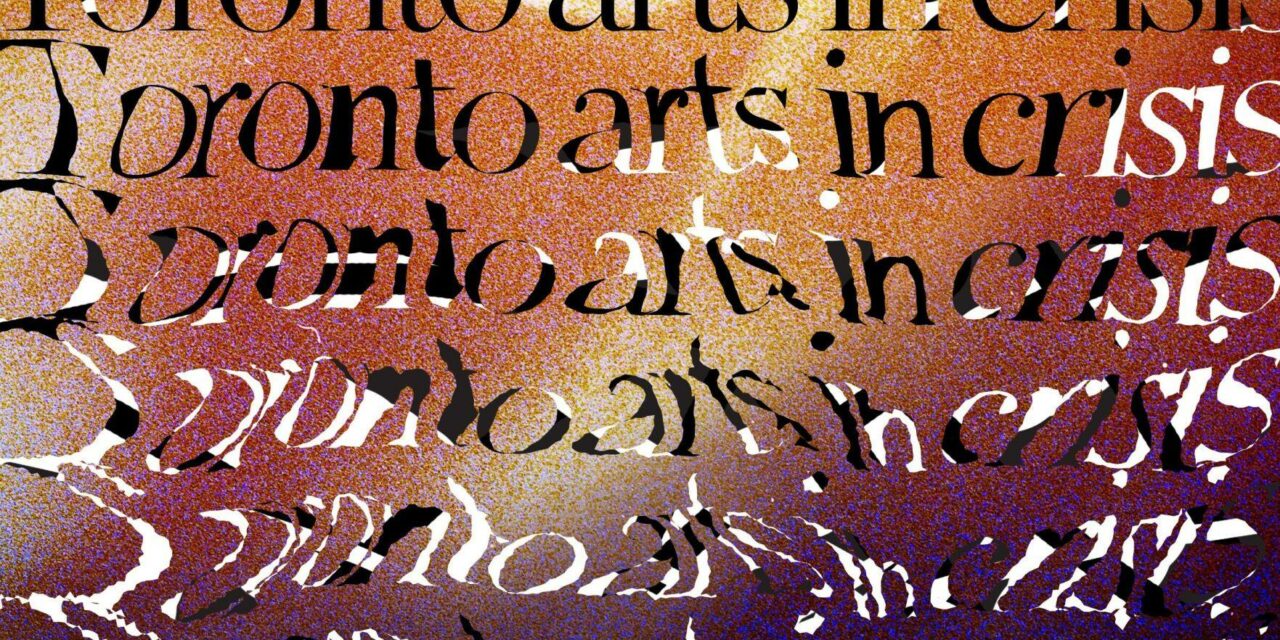 Toronto arts in crisis
Toronto arts in crisis
Toronto arts in crisis
Toronto arts in crisis
Toronto arts in crisis